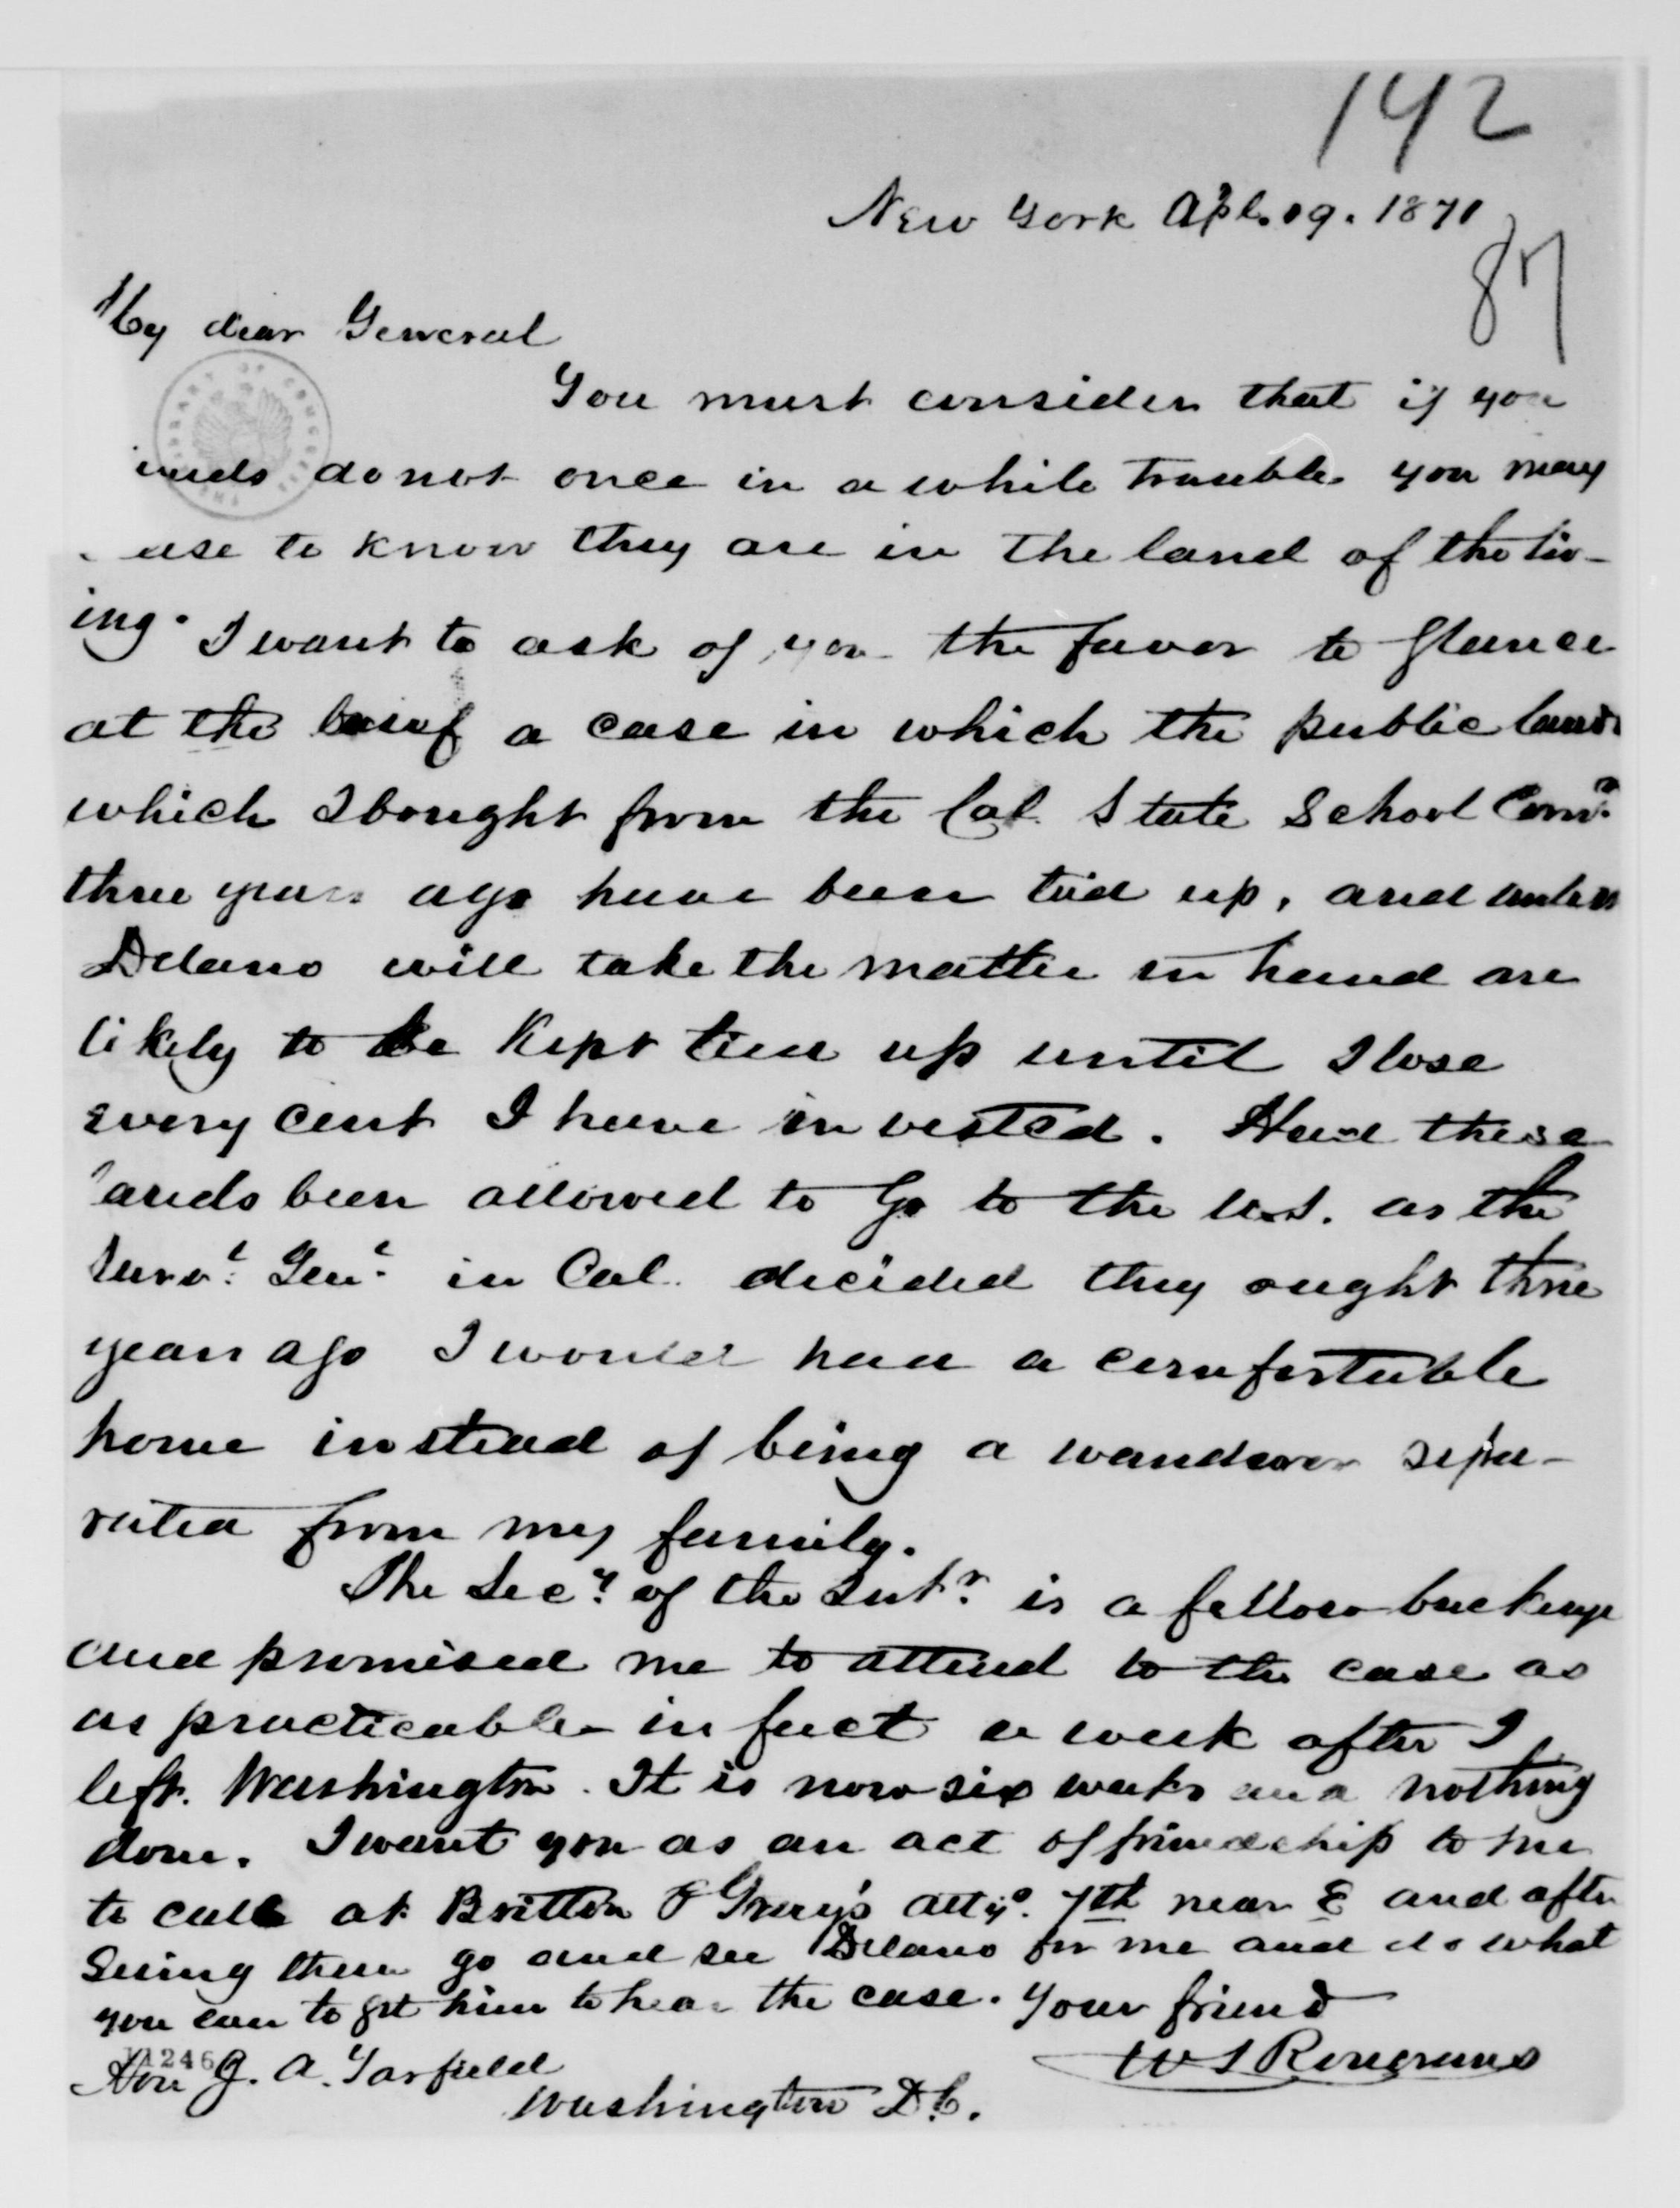 142
New York Apl. 19. 1871
87
My dear General
You must consider that if you
do not once in a while trouble you may
to know they are in the land of the liv-
ing. I want to ask of you the favor to glance
at the brief a case in which the public lands
which I bought from the Cal. State School Comr.
three years ago have been tied up, and unless
Delano will take the matter in hand are
likely to be kept tied up until I lose
every cent I have invested. Had these
lands been allowed to go to the U.S. as the
Survr. Genl. in Cal. decided they ought three
years ago I would had a comfortable
home instead of being a wanderer sepa-
rated from my family.
The Secy. of the Intr. is a fellow buckeye
and promised me to attend to the case as
as practicable in fact a week after I
left Washington. It is now six weeks and nothing
done. I want you as an act of friendship to me
to call at Britton & Gray's attys. 7th near E and after
seeing them go and see Delano for me and do what
you can to get him to hear the case. Your friend
W S Rosecrans
Hon J. A. Garfield
Washington D.C.